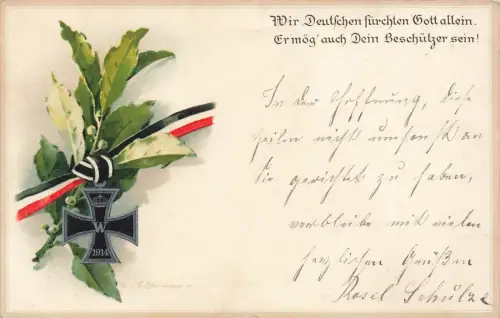 Wir Deutschen fürchten Gott allein.
Er mög' auch Dein Beschützer sein!
In der Hoffnung, diese
Zeilen nicht umsonst an
Sie gerichtet zu haben,
verbleibe mit vielen
herzlichen Grüßen
Rosel Schulze
W
1914